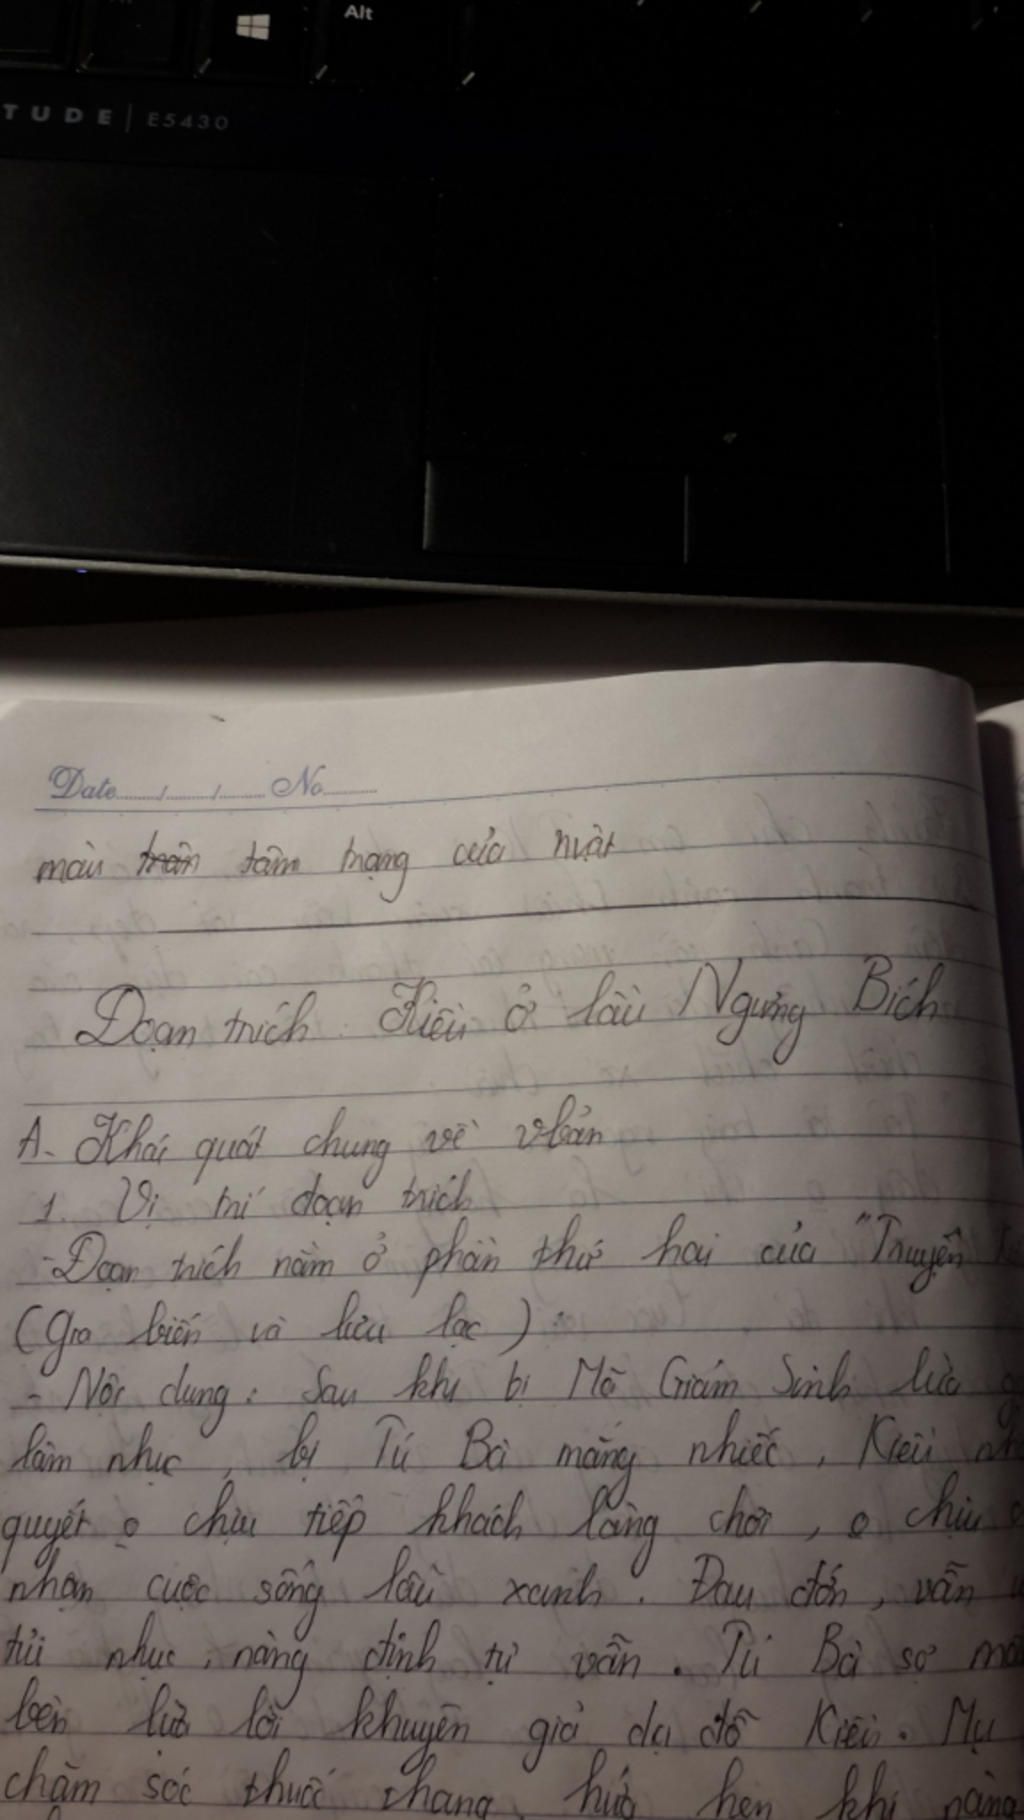 Alt
TUDE | E5430
Date....../....../...... No.........
màu trần tâm trạng của
Đoạn trích Kiều ở lầu Ngưng Bích
A. Khái quát chung về vbản
1. Vị trí đoạn trích
- Đoạn trích nằm ở phần thứ hai của "Truyện
(Gia biến và lưu lạc)
- Nội dung: Sau khi bị Mã Giám Sinh lừa
làm nhục, bị Tú Bà mắng nhiếc, Kiều
quyết o chịu tiếp khách làng chơi, o chịu
nhận cuộc sống lầu xanh. Đau đớn,
tủi nhục, nàng định tự vẫn. Tú Bà sợ
bèn lựa lời khuyên giả dụ dỗ Kiều. Mụ
chăm sóc thuốc thang, hứa hẹn khi nàng